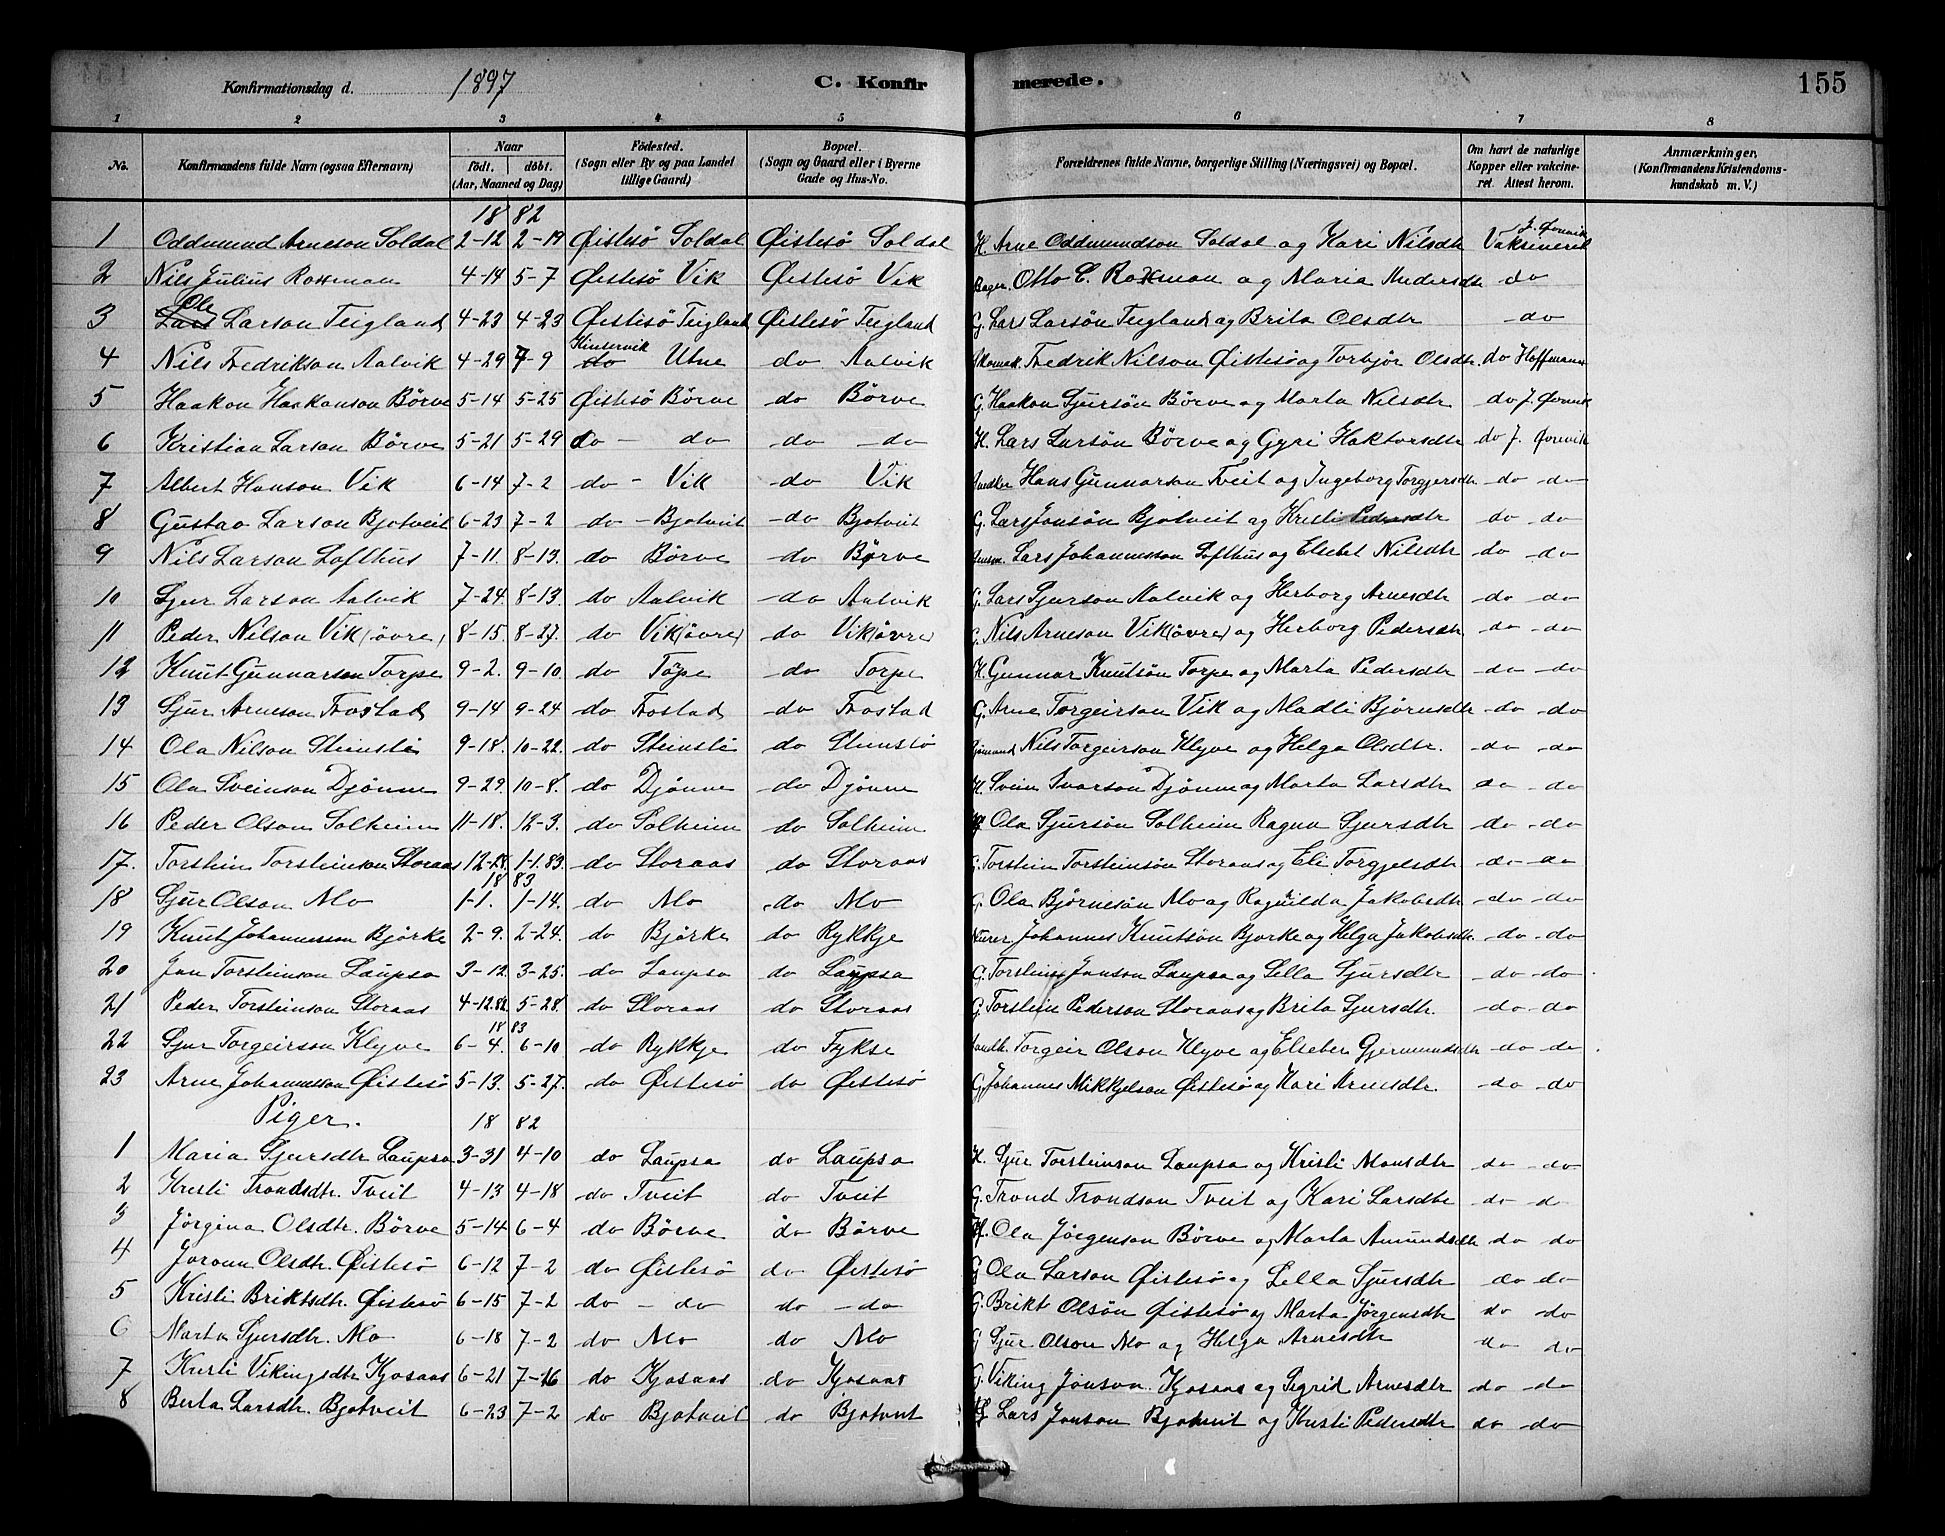 Konfirmationsdag d. 1897 C. Konfirmerede. 155
1 2 3 4 5 6 7 8
No. Konfirmandens fulde Navn (ogsaa Efternavn) Naar født. døbt. (Aar, Maaned og Dag) Fødested. (Sogn eller By og paa Landet tillige Gaard) Bopæl. (Sogn og Gaard eller i Byerne Gade og Hus-No. Forældrenes fulde Navne, borgerlige Stilling (Næringsvei) og Bopæl. Om havt de naturlige Kopper eller vakcineret. Attest herom. Anmærkninger. (Konfirmandens Kristendomskundskab m. V.)
18 82
1 Oddmund Arneson Soldal 2-12 2-19 Øistesö Soldal Øistesö Soldal H. Arne Oddmundson Soldal og Kari Nilsdtr Vaksineret J. Øvrevik
2 Nils Julius Rossman 4-14 5-7 Øistesö Vik Øistesö Vik Bager. Otto C. Rossman og Maria Andersdtr do
3 Ole Larson Teigland 4-23 4-23 Øistesö Teigland Øistesö Teigland G. Lars Larsön Teigland og Brita Olsdtr do
4 Nils Fredrikson Aalvik 4-29 7-9 Kinservik Utne do Aalvik Fredrik Nilson Øistesö og Torbjör Olsdtr. do Hoffmann
5 Haakon Haakonson Börve 5-14 5-25 Øistesö Börve do Börve G. Haakon Sjursön Börve og Marta Nilsdtr do J. Øvrevik
6 Kristian Larson Börve 5-21 5-29 do - do do - do H. Lars Larsön Börve og Gyri Haktorsdtr do J. Øvrevik
7 Albert Hanson Vik 6-14 7-2 do - Vik do Vik Hans Gunnarson Tveit og Ingeborg Torgjersdtr do do
8 Gustav Larson Bjotveit 6-23 7-2 do - Bjotveit do Bjotveit G. Lars Jonsön Bjotveit og Kristi Pedersdtr do do
9 Nils Larson Lofthus 7-11. 8-13. do Börve do Börve Lars Johannesson Lofthus og Elsebet Nilsdtr do do
10 Sjur Larson Aalvik 7-24. 8-13. do Aalvik do Aalvik G. Lars Sjurson Aalvik og Herborg Arnesdtr do do
11 Peder Nilson Vik (övre) 8-15. 8-27. do Vik (övre) do Vik (övre) G. Nils Arneson Vik (övre) og Herborg Pedersdtr do do
12 Knut Gunnarson Torpe 9-2. 9-10. do Töpe do Torpe H. Gunnar Knutsön Torpe og Marta Pedersdtr do do
13 Sjur Arneson Frostad 9-14 9-24 do Frostad do Frostad G. Arne Torgeirson Vik og Madli Björnsdtr do do
14 Ola Nilson Steinstö 9-18. 10-22. do Steinstö do Steinstö Nils Torgeirson Klyve og Helga Olsdtr. do do
15 Ola Sveinson Djönne 9-29. 10-8. do Djönne do Djönne H. Svein Ivarson Djönne og Marta Larsdtr do do
16 Peder Olson Solheim 11-18. 12-3. do Solheim do Solheim Ola Sjursön Solheim Ragna Sjursdtr do do
17. Torstein Torsteinson Storaas 12-18. 1-1.83. do Storaas do Storaas G. Torstein Torsteinsön Storaas og Eli Torgjelsdtr do do
18 83
18 Sjur Olson Mo 1-1. 1-14. do Mo do Mo G. Ola Björnesön Mo og Ragnilda Jakobsdtr do do
19 Knut Johannesson Björke 2-9. 2-24. do Björke do Rykkje Johannes Knutsön Bjorke og Helga Jakobsdtr. do do
20 Jon Torsteinson Laupsa 3-12. 3-25. do Laupsa do Laupsa G. Torstein Jonson Laupsa og Sella Sjursdtr do do
21 Peder Torsteinson Storaas 4-12.82. 5-28. do Storaas do Storaas G. Torstein Pederson Storaas og Brita Sjursdtr. do do
18 83
22 Sjur Torgeirson Klyve 6-4. 6-10 do Rykkje do Fykse Torgeir Olson Klyve og Elseber Gjermundsdtr do do
23 Arne Johannesson Øistesö 5-13. 5-27. do Øistesö do Øistesö G. Johannes Mikkjelson Øistesö og Kari Arnesdtr. do do
Piger. 18 82
1 Maria Sjursdtr Laupsa 3-31 4-10 do Laupsa do Laupsa H. Sjur Torsteinson Laupsa og Kristi Monsdtr do do
2 Kristi Trondsdtr. Tveit 4-13 4-18 do Tveit do Tveit G. Trond Trondson Tveit og Kari Larsdtr do d
3 Jörgina Olsdtr. Börve 5-14 6-4 do Börve do Börve Ola Jörgenson Börve og Marta Amundsdtr do do
4 Jorunn Olsdtr. Øistesö 6-12 7-2 do Øistesö do Øistesö G Ola Larson Øistesö og Sella Sjursdtr do do
5 Kristi Briktsdtr. Øistesö 6-15 7-2 do - do do - do G. Brikt Olsön Øistesö og Marta Jörgensdtr do do
6 Marta Sjursdtr. Mo 6-18 7-2 do Mo do Mo G Sjur Olson Mo og Helga Arnesdtr do do
7 Kristi Vikingsdtr Kjosaas 6-21 7-16 do Kjosaas do Kjosaas G. Viking Jonson Kjosaas og Sigrid Arnesdtr do do
8 Berta Larsdtr. Bjotveit 6-23 7-2 do Bjotveit do Bjotveit Lars Jonson Bjotveit og Kristi Pedersdtr do do